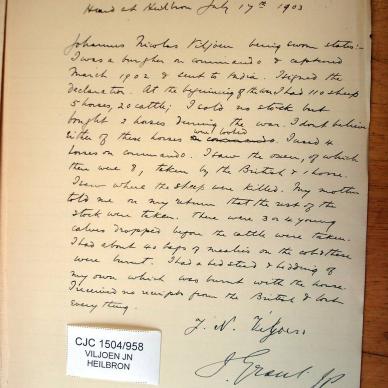 Heard at Heilbron July 17th 1903
Johannes Nicolas Viljoen being sworn states:-
I was a burgher on commando & captured
March 1902 & sent to India. I signed the
declaration. At the beginning of the war I had 110 sheep
5 horses, 20 cattle; I sold no stock but
bought 2 horses during the war. I don't believe
either of these horses were looted on commando. I used 4
horses on commando. I saw the oxen, of which
there were 8, taken by the British & 1 horse.
I saw where the sheep were killed. My mother
told me on my return that the rest of the
stock were taken. There were 3 or 4 young
calves dropped before the cattle were taken.
I had about 40 bags of mealies on the cobs these
were burnt. I had a bedstead & bedding of
my own which was burnt with the house.
I received no receipts from the British & lost
everything.
J. N. Viljoen
J. Grant JP
CJC 1504/958
VILJOEN JN
HEILBRON